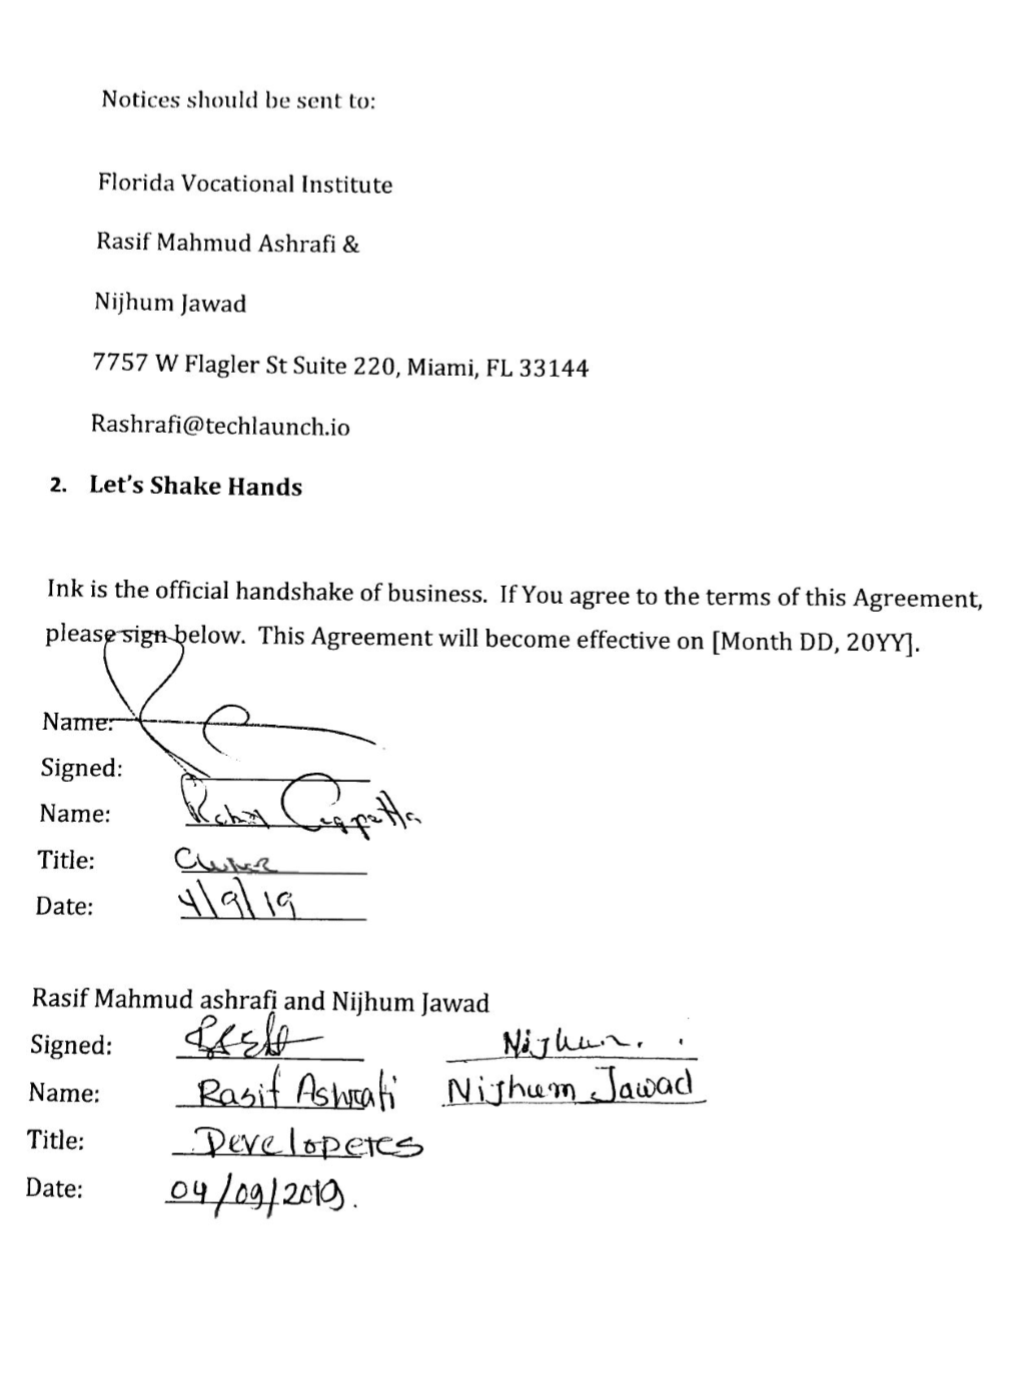 Notices should be sent to:
Florida Vocational Institute
Rasif Mahmud Ashrafi &
Nijhum Jawad
7757 W Flagler St Suite 220, Miami, FL 33144
Rashrafi@techlaunch.io
2. Let's Shake Hands
Ink is the official handshake of business. If You agree to the terms of this Agreement,
please sign below. This Agreement will become effective on [Month DD, 20YY].
Name:
Signed:
Name:
Title: Owner
Date: 4/9/19
Rasif Mahmud ashrafi and Nijhum Jawad
Signed: Nijhum.
Name: Rasif Ashrafi Nijhum Jawad
Title: Developers
Date: 04/09/2019.